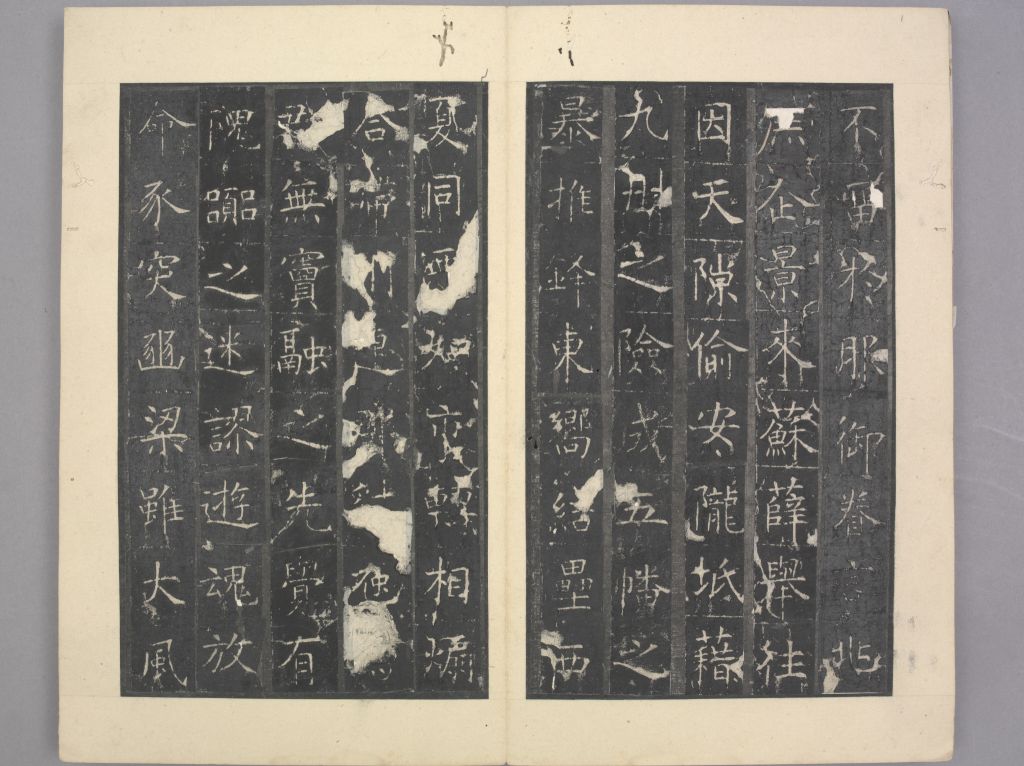 不留服御眷言北
企景來蘇薛舉往
因天隙偷安隴坻藉
九州之險五幡之
暴推鋒東嚮結壘西
夏同惡相煽
合川
無竇融之先覺有
隗嚻之迷謬遊魂放
命豕突豳梁雖大風